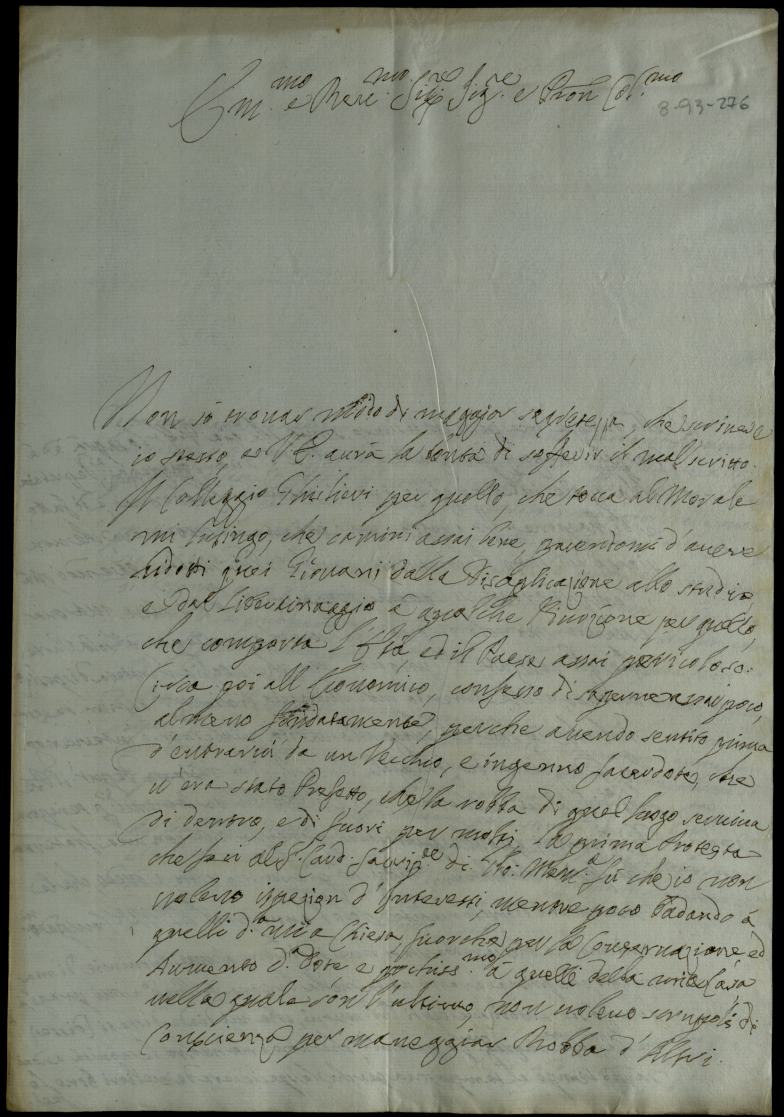 Em.mo e Rev.mo Sig.re Sig.re e Pron Col.mo
8-93-276
Non sò trovar modo di maggior segretezza, che scrivere
io stesso, e V.E. aurà la bontà di soffrir il mal scritto.
Il Colleggio Ghislieri per quello, che tocca al Morale
mi lusingo, che camini assai bene, parendomi d'avere
ridotti quei Giovani dalla disapplicazione allo studio
e dal libertinaggio à qualche divozione per quello,
che comporta l'Età, ed il Paese assai pericoloso.
Circa poi all'Economico, confesso di saperne assai poco,
almeno fondatamente, perche avendo sentito prima
d'entrarvi da un Vecchio, e ingenuo Sacerdote, che
n'era stato Prefetto, che la robba di quel luogo serviva
di dentro, e di fuori per molti, la prima Protesta
che feci al S. Card. Sacrip.te di Glo: Mem.a fù che io non
volevo ispezion d'Interessi, mentre poco badando à
quelli d.a mia Chiesa, fuorche per la Conservazione ed
Aumento d.a Dote e pochiss.mo à quelli della mia Casa
nella quale son l'ultimo, non volevo scrupoli di
Conscienza per maneggiar Robba d'Altri.